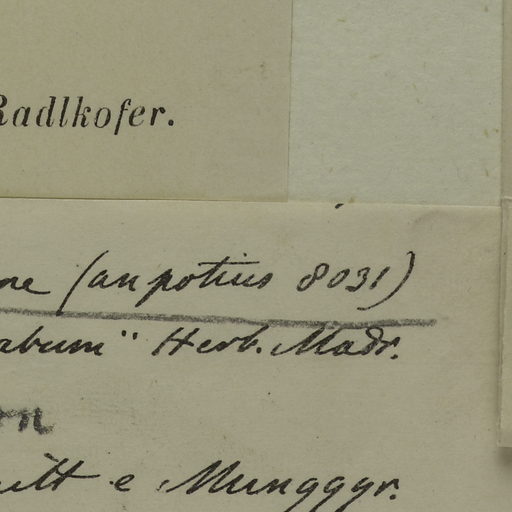 Radlkofer.
ne (an potius 8031)
abum" Herb. Madr.
rn
itt e Munggyr.